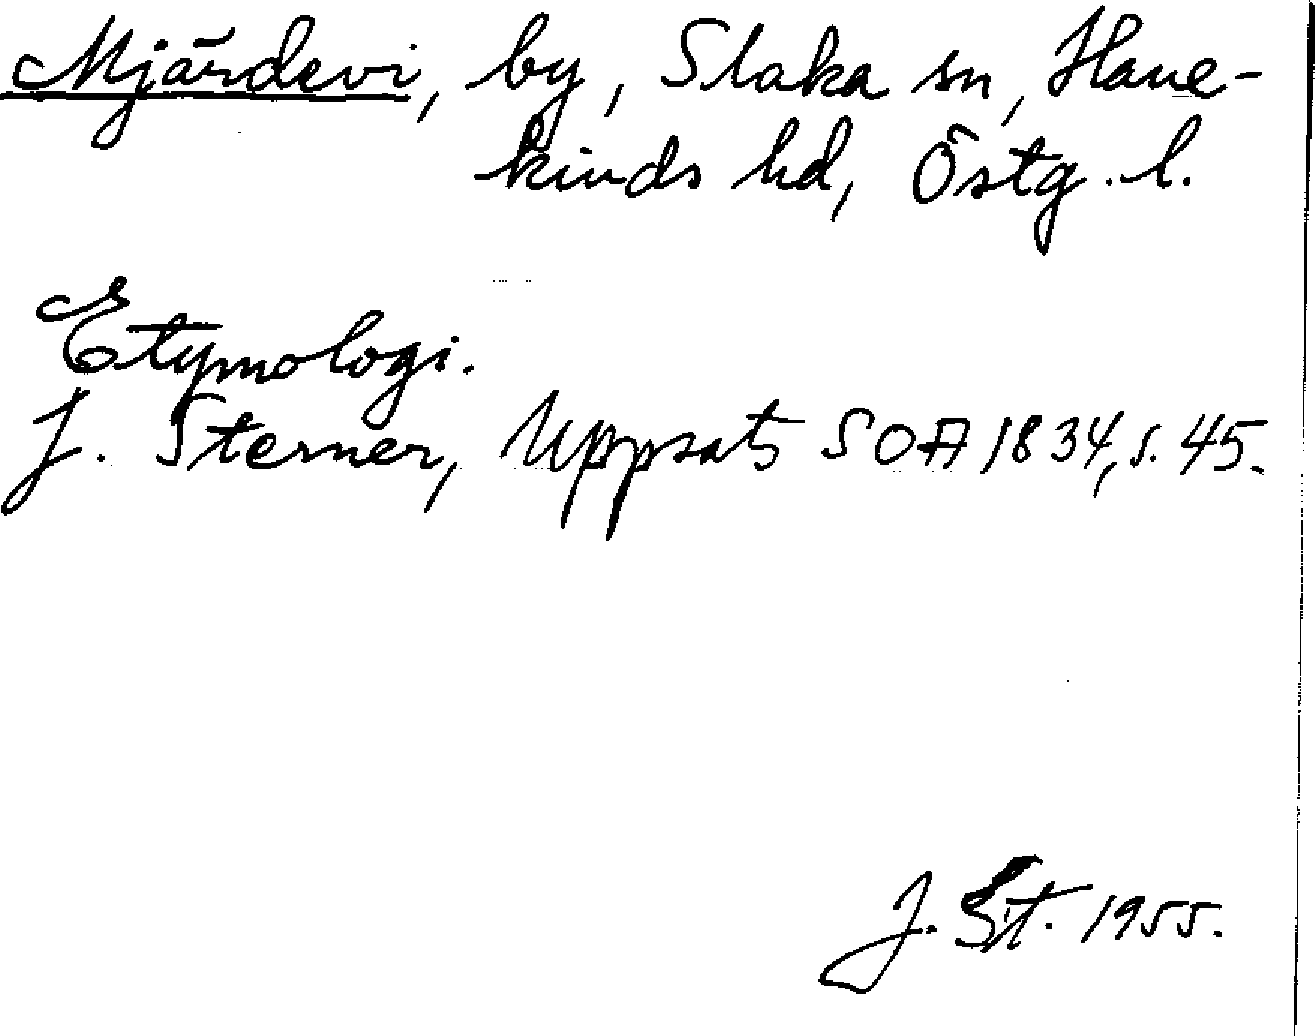 Mjärdevi, by, Slaka sn, Hane-
kinds hd, Östg. l.
Etymologi.
J. Sterner, Uppsats SOA 1834, s. 45.
J. St. 1955.